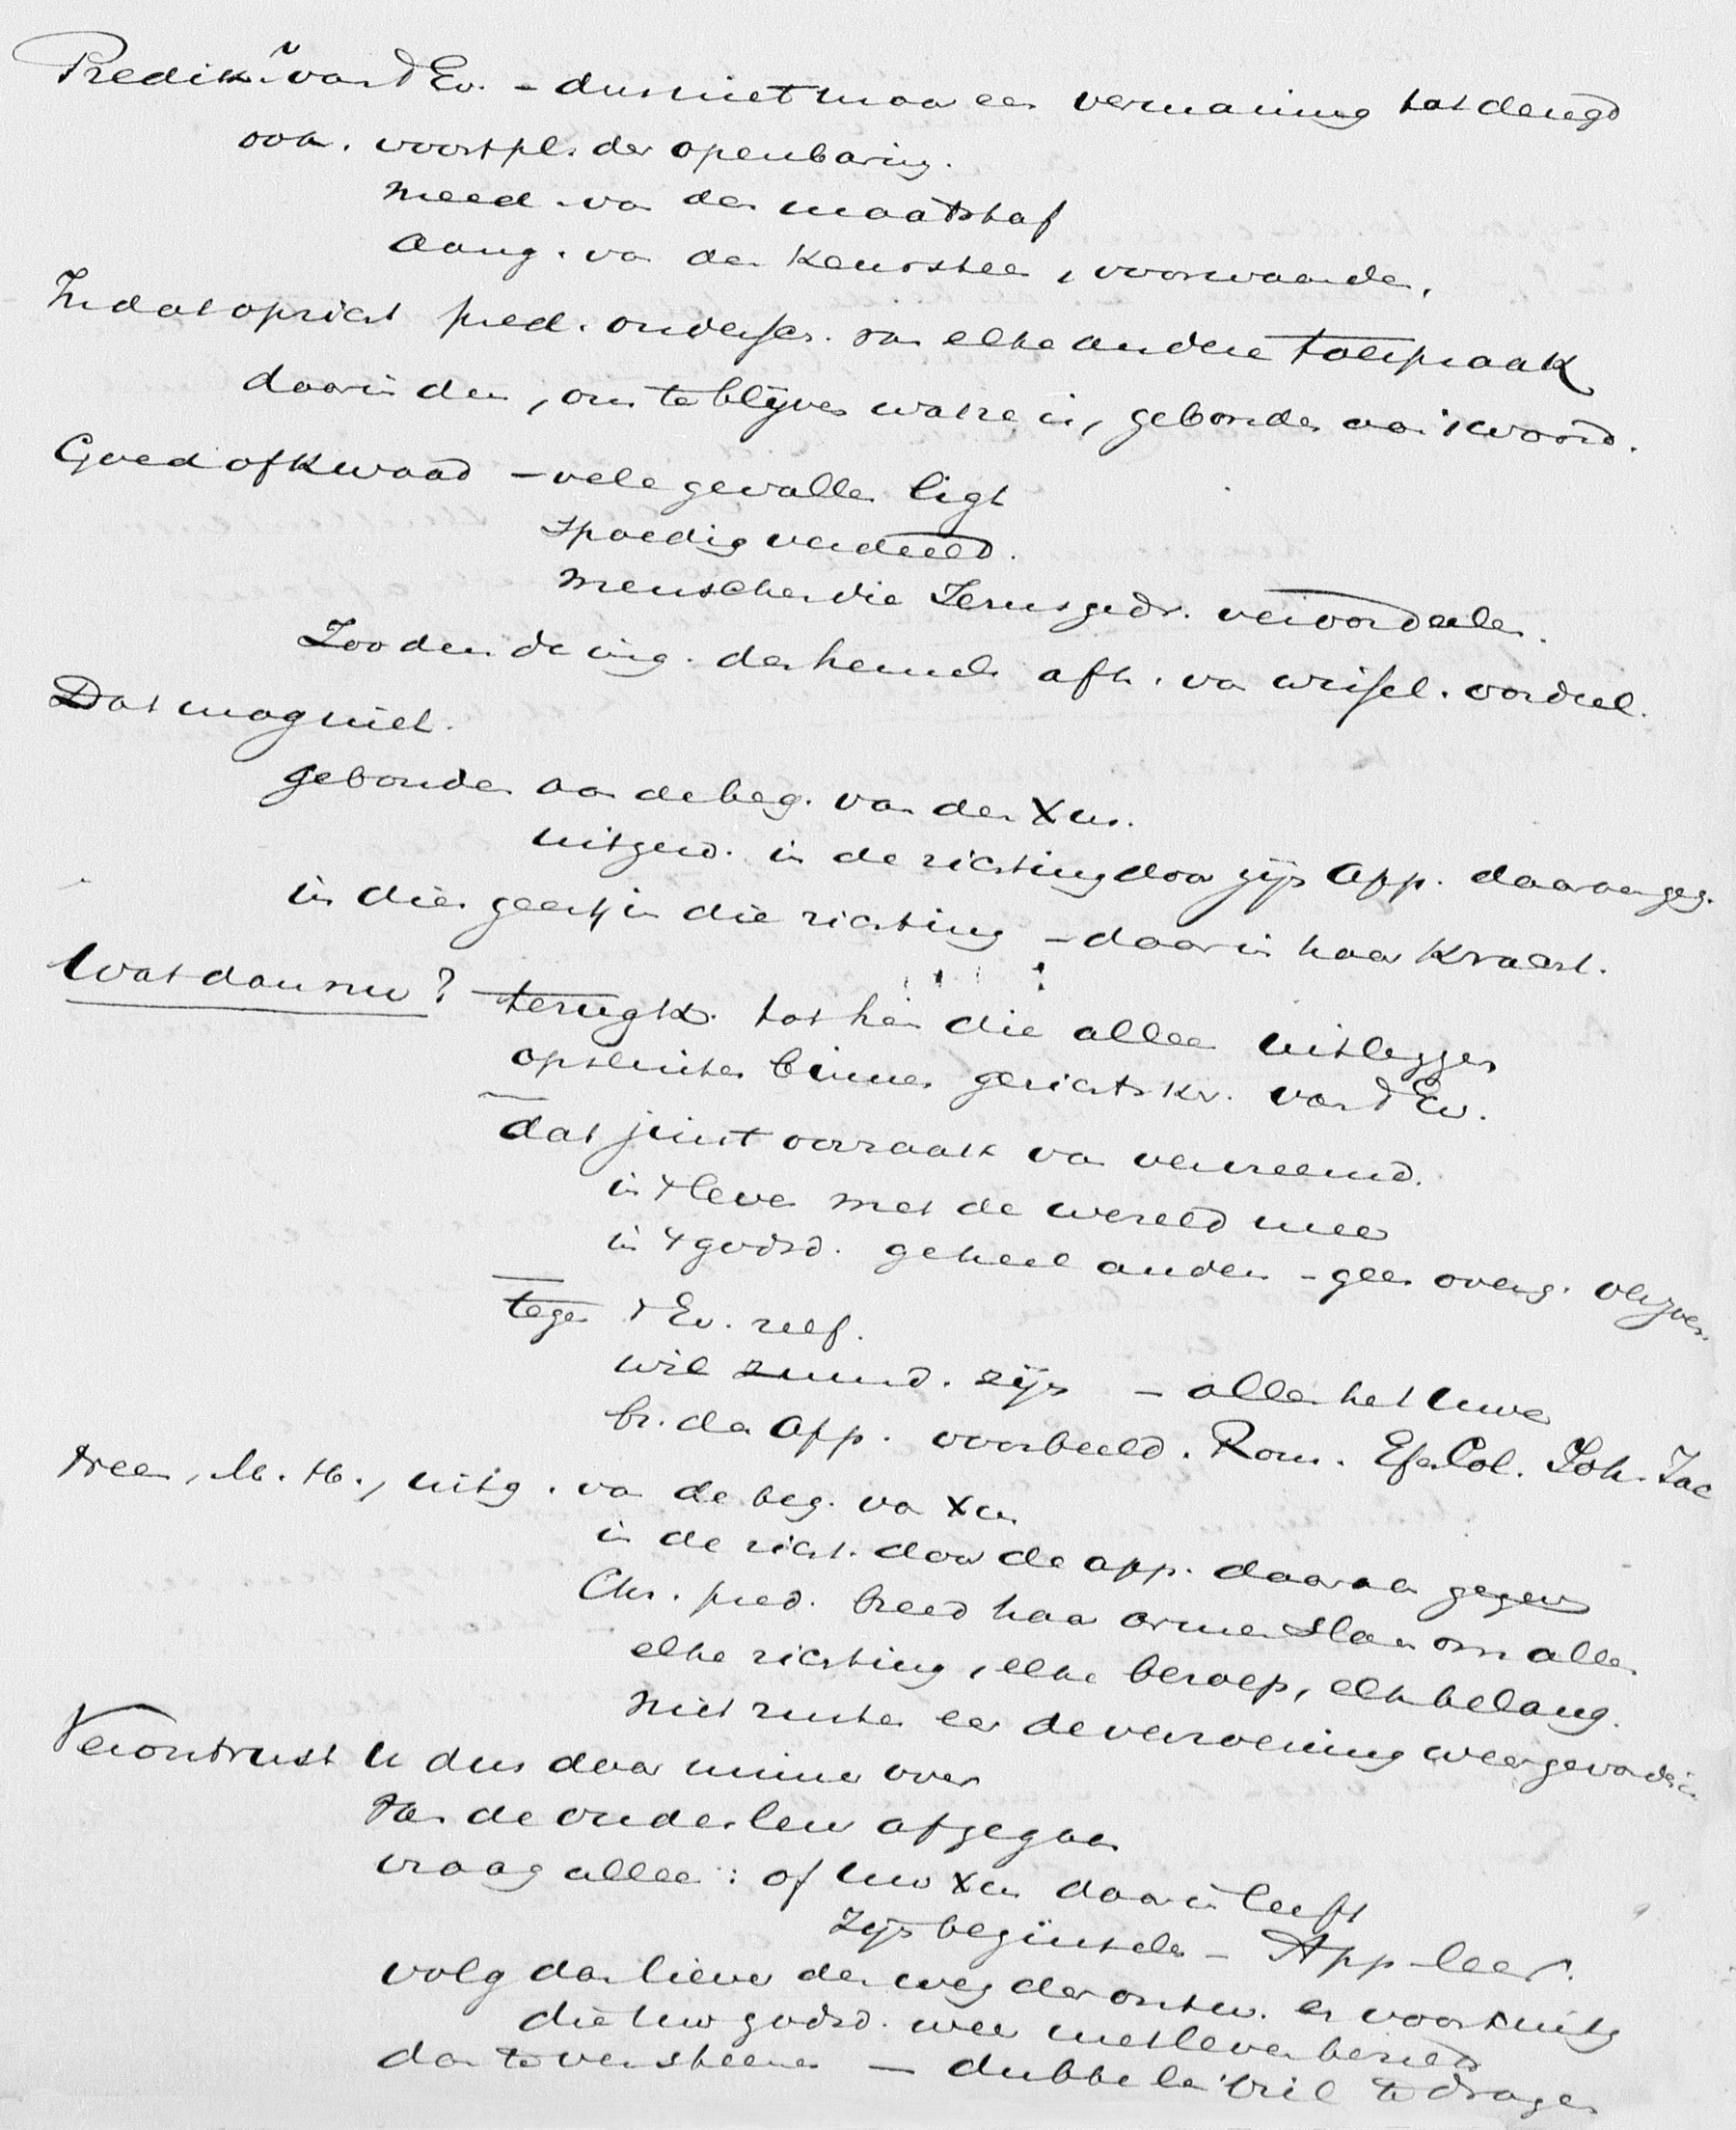 Predikn van 't Ev. – dus niet maar een vermaning tot deugd
ook. voortpl. der openbaring.
meed. van den maatstaf
aang. van den Keursteen, voorwaarden.
In dat opzicht pred. ondersch. van elke andere toespraak
daarin den, om te blijven wat ze is, gebonden aan 't woord.
Goed of Kwaad – vele gevallen ligt
spoedig verdeeld.
menschen die Jezus gedr. veroordeelen.
Zouden de ing. des hemels afh. van wissel. oordeel.
Dat mag niet.
gebonden aan de beg. van den Xus.
uitgew. in de richting door zijn App. daaraan geg.
in dien geest, in die richting – daarin haar Kracht.
Wat dan nu? terugk. tot hen die alleen uitleggen
opsluiten binnen gezichtskr. van 't Ev.
dat juist oorzaak van vervreemd.
in 't leven met de wereld mee
in 't godsd. geheel anders – geen overg. blijven.
tegen 't Ev. zelf.
wil zuurd. zijn – allen het Uwe
br. der App. voorbeeld. Rom. Efe. Col. Joh. Jac
Neen, M. H., uitg. van de beg. van Xus
in de richt. door de app. daaraan gegeven
Chr. pred. breed haar armen slaan om allen
elke richting, elke beroep, elk belang.
niet rusten eer de verzoening weer gevonden is.
Verontrust U dus daar nimmer over
van de oude leer afgegaan
vraag alleen: of Uw Xus daarin leeft
Zijn beginselen – App leer.
volg dan liever den weg der ontw. en vooruitg
die Uw godsd. weer met leven bezield
dan te versteenen – dubbele bril te dragen